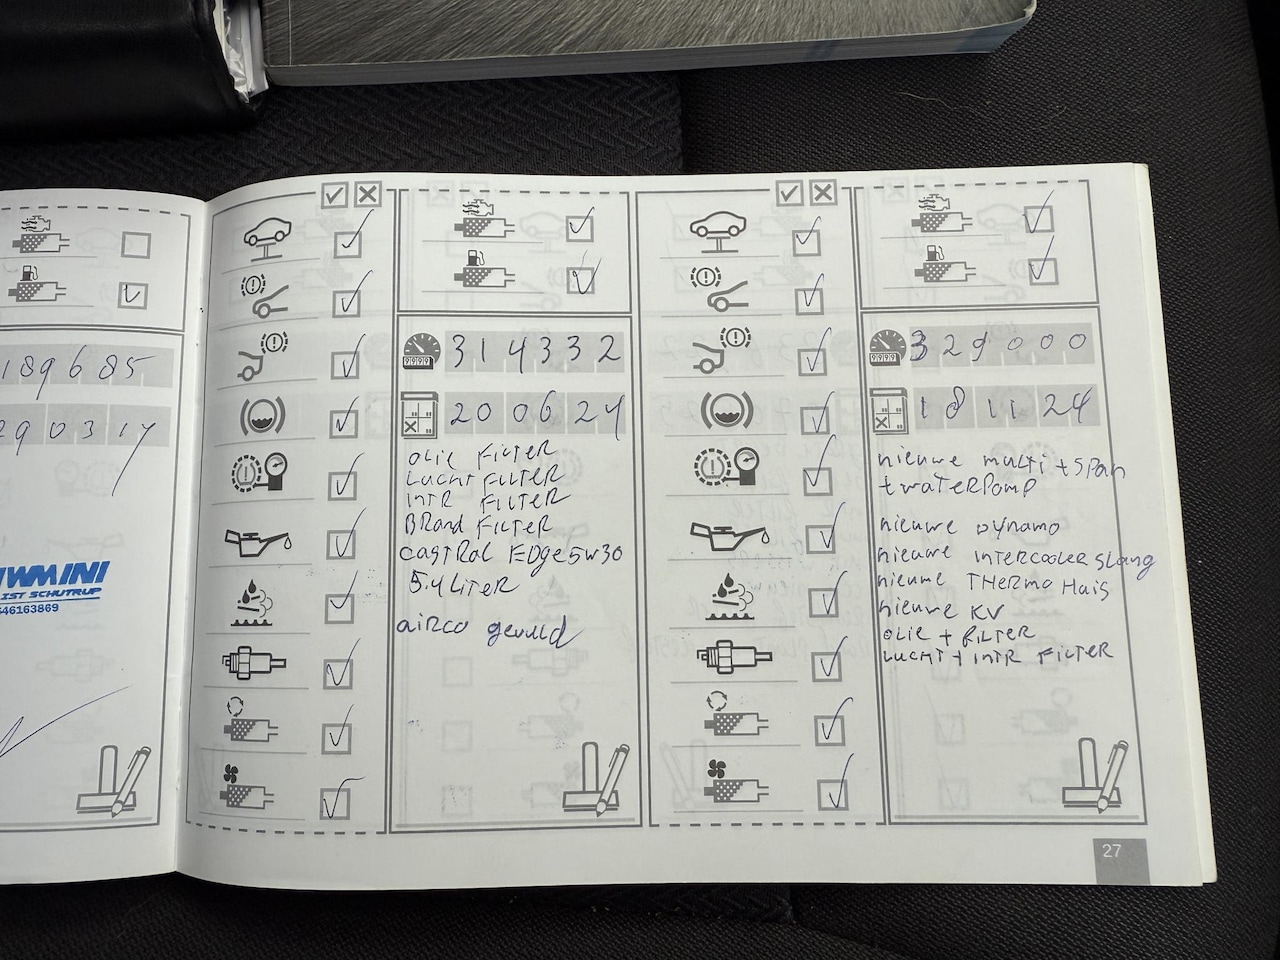 189685
290317
WMINI
IST SCHUTRUP
646163869
314332
20 06 24
OLIE FILTER
LUCHT FILTER
INTR FILTER
BRAND FILTER
CASTROL EDGE 5W30
5.4 LITER
airco gevuld
329000
18 11 24
nieuwe multi + span
+ waterpomp
nieuwe Dynamo
nieuwe intercooler slang
nieuwe THermo Huis
nieuwe KV
OLIE + FILTER
LUCHT + INTR FILTER
27